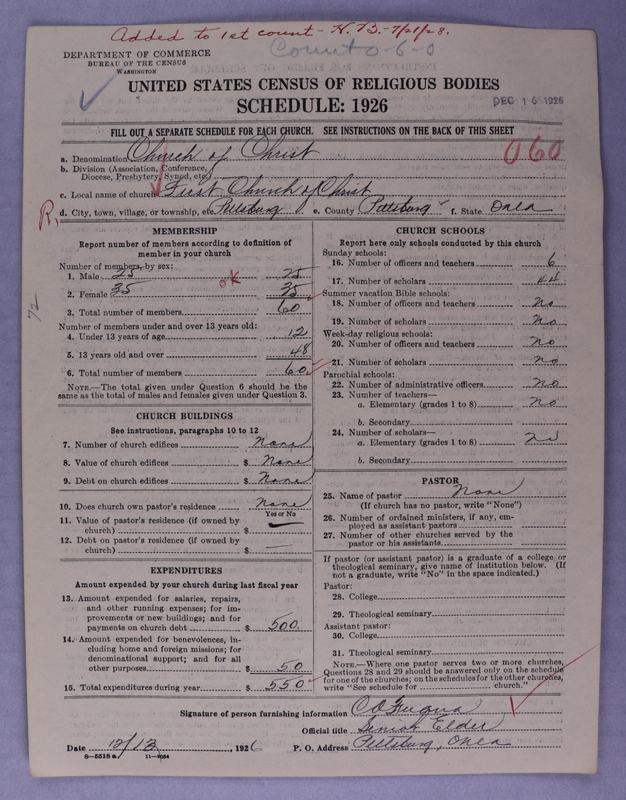 Added to 1st count - H.B. - 7/21/28.
Count 0-6-0
DEPARTMENT OF COMMERCE
BUREAU OF THE CENSUS
WASHINGTON
UNITED STATES CENSUS OF RELIGIOUS BODIES
SCHEDULE: 1926
DEC 16 1926
FILL OUT A SEPARATE SCHEDULE FOR EACH CHURCH. SEE INSTRUCTIONS ON THE BACK OF THIS SHEET
a. Denomination Church of Christ
060
b. Division (Association, Conference,
Diocese, Presbytery, Synod, etc.)
c. Local name of church First Church of Christ
R,
d. City, town, village, or township, etc. Pittsburg e. County Pittsburg f. State Okla
72
MEMBERSHIP
Report number of members according to definition of
member in your church
Number of members, by sex:
1. Male 25 25
OK
2. Female 35 35
3. Total number of members 60
Number of members under and over 13 years old:
4. Under 13 years of age 12
5. 13 years old and over 48
6. Total number of members 60
NOTE.—The total given under Question 6 should be the
same as the total of males and females given under Question 3.
CHURCH BUILDINGS
See instructions, paragraphs 10 to 12
7. Number of church edifices None
8. Value of church edifices $ None
9. Debt on church edifices $ None
10. Does church own pastor's residence None
Yes or No
11. Value of pastor's residence (if owned by
church) $ —
12. Debt on pastor's residence (if owned by
church) $ —
EXPENDITURES
Amount expended by your church during last fiscal year
13. Amount expended for salaries, repairs,
and other running expenses; for im-
provements or new buildings; and for
payments on church debt $ 500
14. Amount expended for benevolences, in-
cluding home and foreign missions; for
denominational support; and for all
other purposes $ 50
15. Total expenditures during year $ 550
CHURCH SCHOOLS
Report here only schools conducted by this church
Sunday schools:
16. Number of officers and teachers 6
17. Number of scholars 44
Summer vacation Bible schools:
18. Number of officers and teachers No
19. Number of scholars No
Week-day religious schools:
20. Number of officers and teachers No
21. Number of scholars No
Parochial schools:
22. Number of administrative officers No
23. Number of teachers—
a. Elementary (grades 1 to 8) No
b. Secondary
24. Number of scholars—
a. Elementary (grades 1 to 8) No
b. Secondary
PASTOR
25. Name of pastor None
(If church has no pastor, write "None")
26. Number of ordained ministers, if any, em-
ployed as assistant pastors
27. Number of other churches served by the
pastor or his assistants
If pastor (or assistant pastor) is a graduate of a college or
theological seminary, give name of institution below. (If
not a graduate, write "No" in the space indicated.)
Pastor:
28. College
29. Theological seminary
Assistant pastor:
30. College
31. Theological seminary
NOTE.—Where one pastor serves two or more churches,
Questions 28 and 29 should be answered only on the schedule
for one of the churches; on the schedules for the other churches,
write "See schedule for church."
Signature of person furnishing information C O Fuqua
Official title Senior Elder
Date 12/13, 1926 P. O. Address Pittsburg, Okla
8—5518a 11—9054